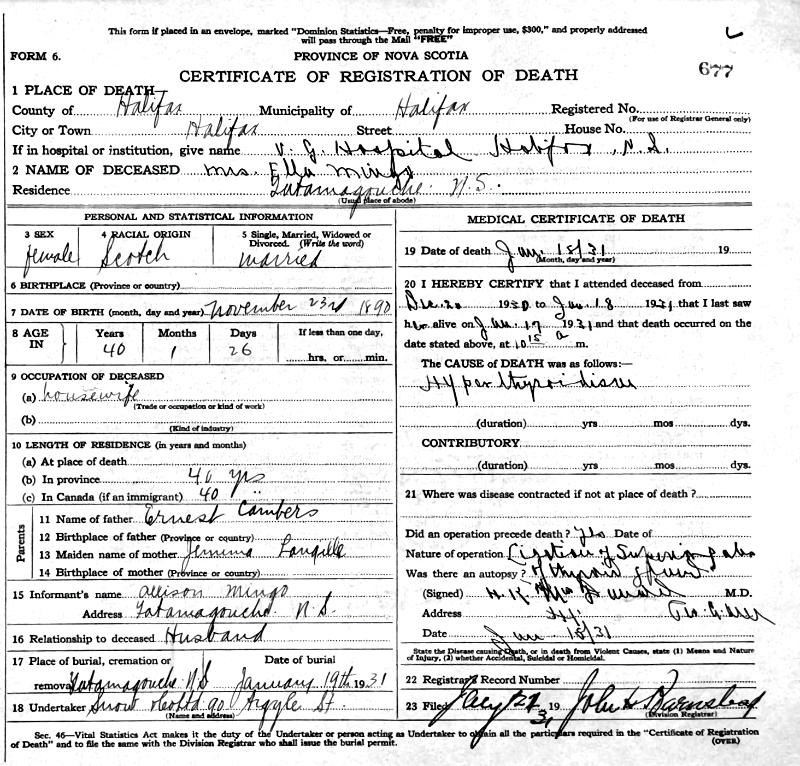 This form if placed in an envelope, marked "Dominion Statistics—Free, penalty for improper use, $300," and properly addressed
will pass through the Mail "FREE"
FORM 6.
PROVINCE OF NOVA SCOTIA
CERTIFICATE OF REGISTRATION OF DEATH
677
1 PLACE OF DEATH—
County of Halifax Municipality of Halifax Registered No.
(For use of Registrar General only)
City or Town Halifax Street House No.
If in hospital or institution, give name V. G. Hospital Halifax, N.S.
2 NAME OF DECEASED Mrs. Ella Mingo
Residence Tatamagouche N.S.
(Usual place of abode)
PERSONAL AND STATISTICAL INFORMATION
3 SEX 4 RACIAL ORIGIN 5 Single, Married, Widowed or Divorced. (Write the word)
female Scotch married
6 BIRTHPLACE (Province or country)
7 DATE OF BIRTH (month, day and year) November 23rd 1890
8 AGE IN Years Months Days If less than one day,
40 1 26 hrs. or min.
9 OCCUPATION OF DECEASED
(a) housewife
(Trade or occupation or kind of work)
(b)
(Kind of industry)
10 LENGTH OF RESIDENCE (in years and months)
(a) At place of death
(b) In province 40 yrs
(c) In Canada (if an immigrant) 40 "
Parents
11 Name of father Ernest Cambers
12 Birthplace of father (Province or country)
13 Maiden name of mother Jemima Langille
14 Birthplace of mother (Province or country)
15 Informant's name Allison Mingo
Address Tatamagouche N.S.
16 Relationship to deceased Husband
17 Place of burial, cremation or Date of burial
removal Tatamagouche N.S January 19th 1931
18 Undertaker Snow 90 Argyle St.
(Name and address)
MEDICAL CERTIFICATE OF DEATH
19 Date of death Jan. 18/31 19
(Month, day and year)
20 I HEREBY CERTIFY that I attended deceased from
Dec. 20 1930 to Jan. 18 1931 that I last saw
her alive on Jan. 17 1931 and that death occurred on the
date stated above, at 10 15 a m.
The CAUSE of DEATH was as follows:—
Hyperthyroidism
(duration) yrs mos dys.
CONTRIBUTORY
(duration) yrs mos dys.
21 Where was disease contracted if not at place of death?
Did an operation precede death? Yes Date of
Nature of operation Ligation of Superior
Was there an autopsy? of thyroid gland
(Signed) H. K. M.D.
Address
Date Jan 18/31
State the Disease causing Death, or in death from Violent Causes, state (1) Means and Nature
of Injury, (2) whether Accidental, Suicidal or Homicidal.
22 Registrar's Record Number
23 Filed 19 31 John
(Division Registrar)
Sec. 46—Vital Statistics Act makes it the duty of the Undertaker or person acting as Undertaker to obtain all the particulars required in the "Certificate of Registration
of Death" and to file the same with the Division Registrar who shall issue the burial permit.
(OVER)